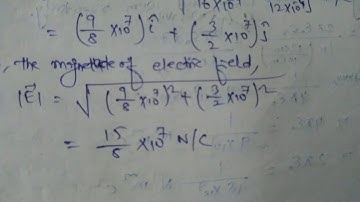 16×10⁻⁴ 12×10⁻⁴]
= (9/8 ×10⁷) î + (3/2 ×10⁷) ĵ
, the magnitude of electric field,
|E⃗| = √(9/8 ×10⁷)² + (3/2 ×10⁷)²
= 15/8 ×10⁷ N/C